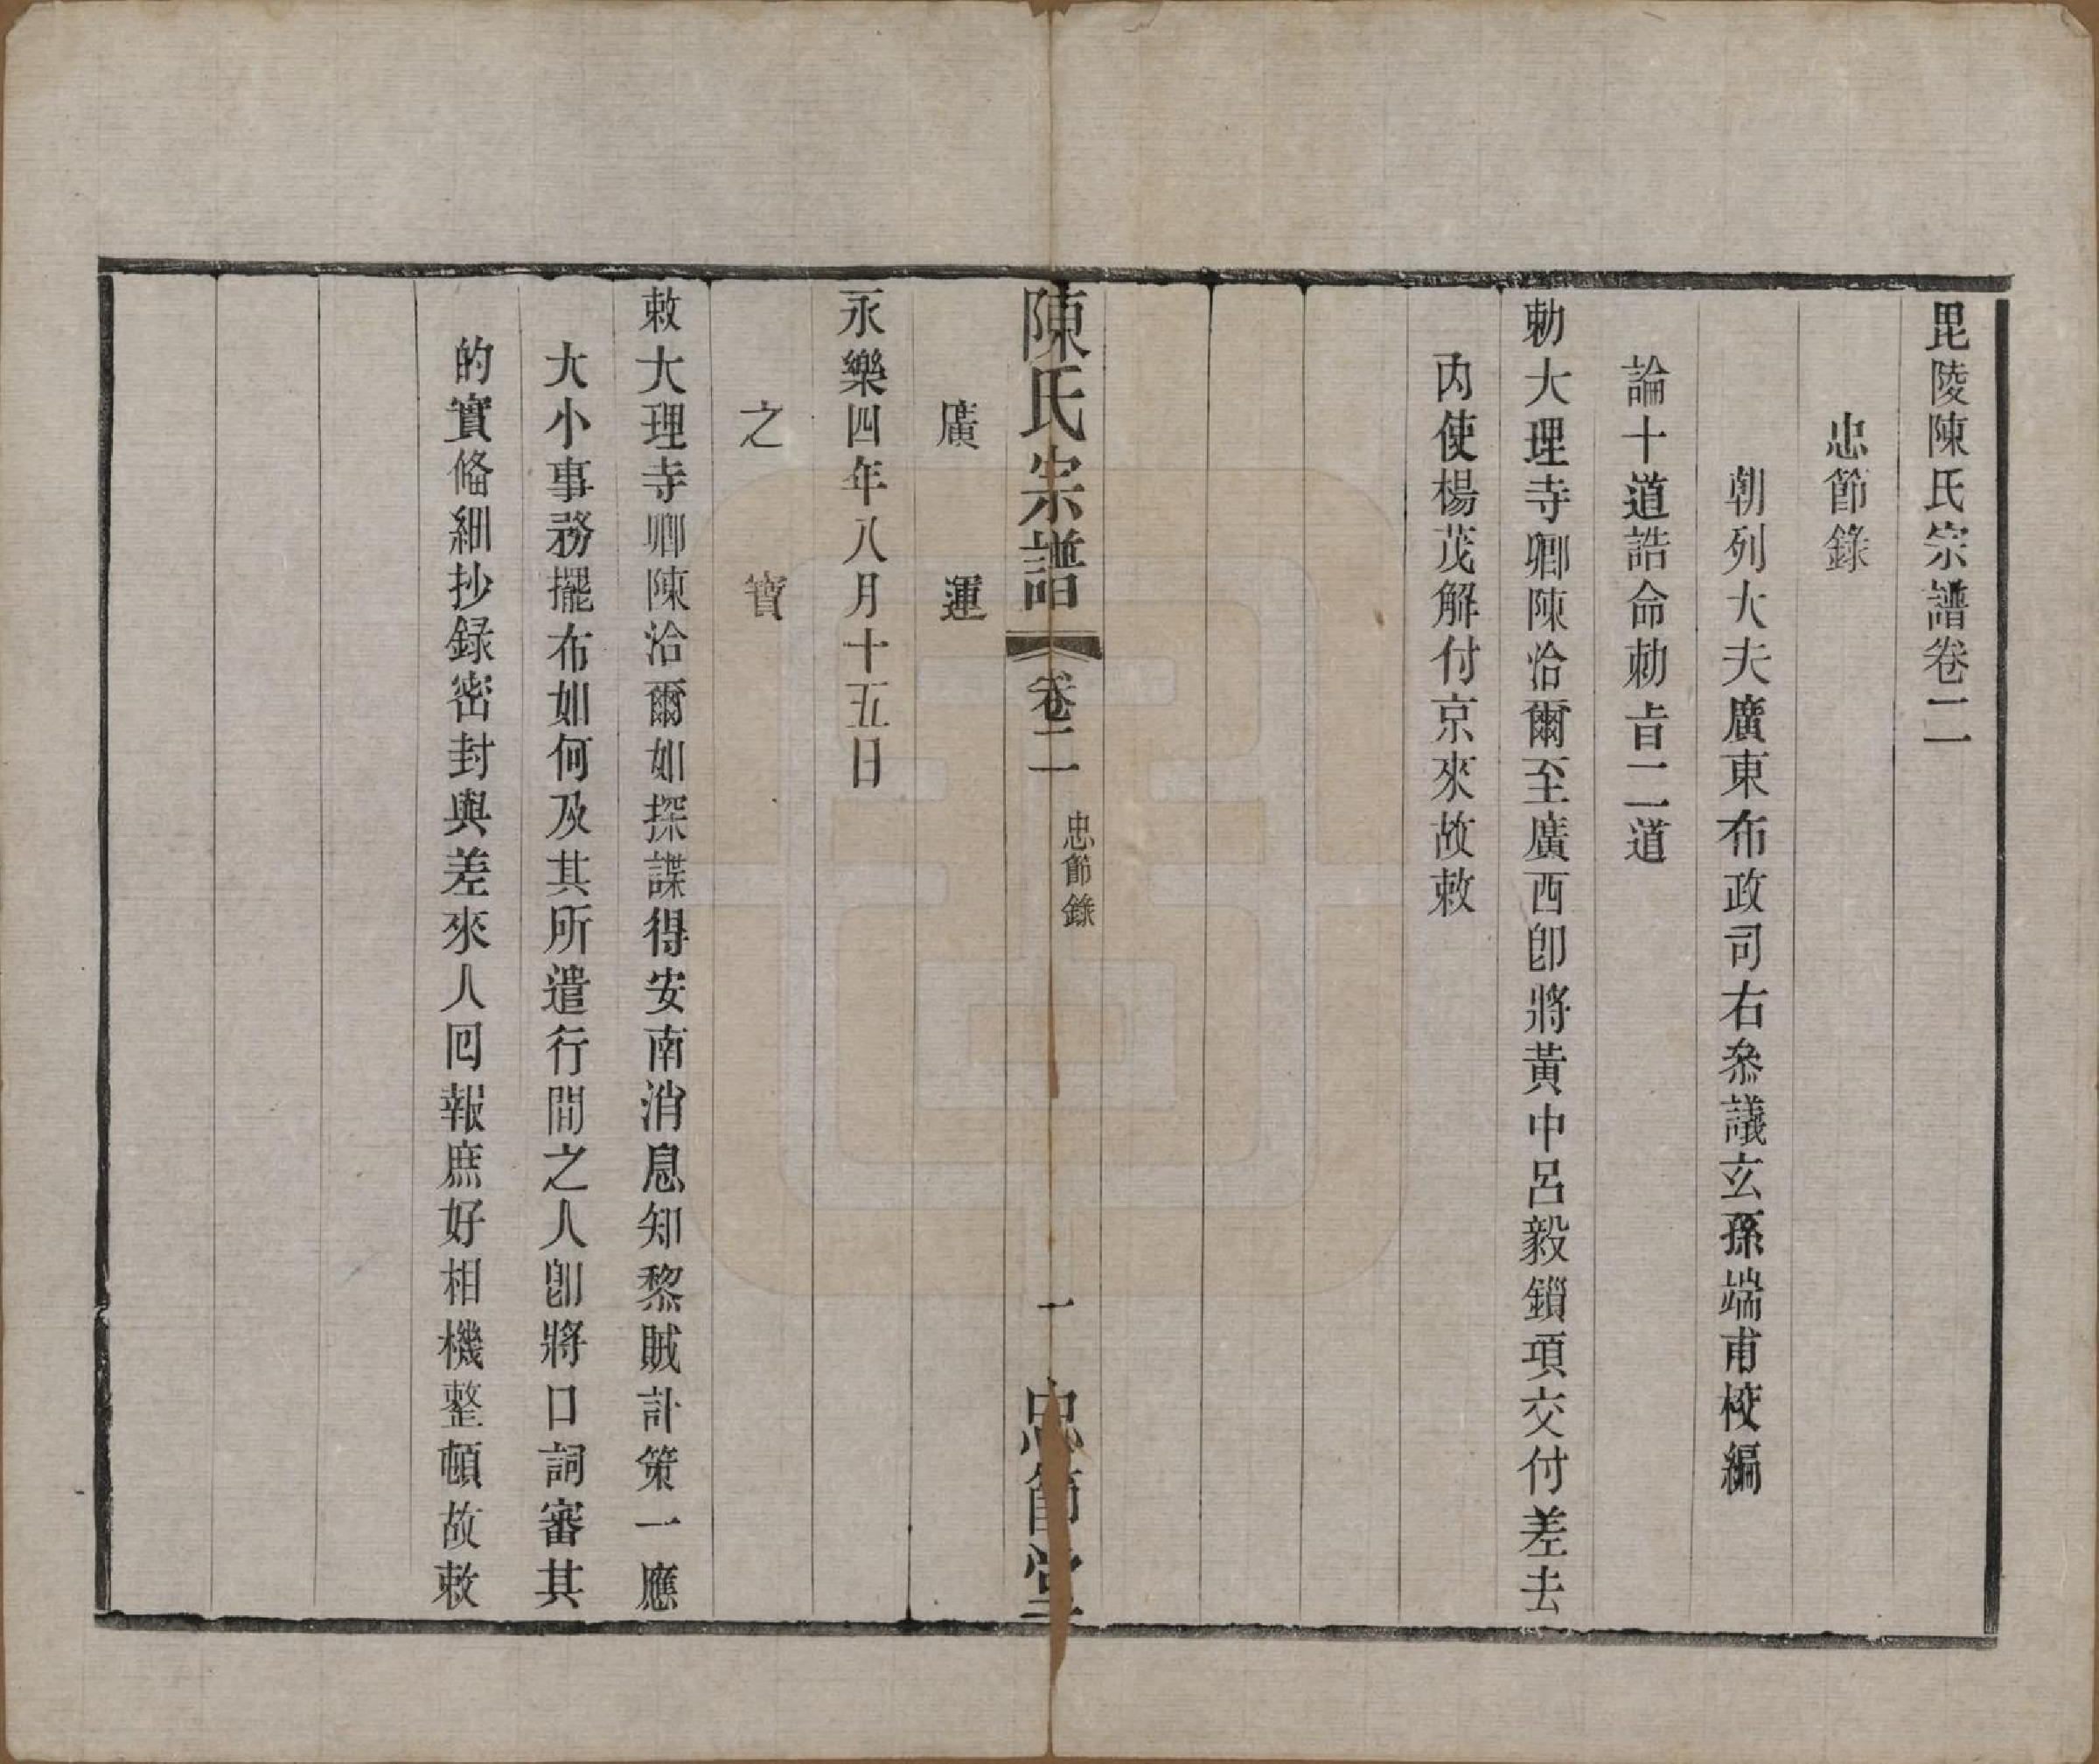 毘陵陳氏宗譜卷二
忠節錄
朝列大夫廣東布政司右叅議玄孫端甫校編
論十道誥命勅㫖二道
勅大理寺卿陳洽爾至廣西卽將黃中呂毅鎖項交付差去
內使楊茂解付京來故敕
陳氏宗譜
卷二
忠節錄
一
忠節堂
廣運
永樂四年八月十五日
之寶
敕大理寺卿陳洽爾如探諜得安南消息知黎賊計策一應
大小事務擺布如何及其所遣行間之人卽將口詞審其
的實俻細抄録密封與差來人囘報庶好相機整頓故敕